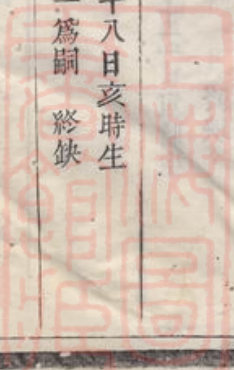 十八日亥時生
爲嗣 終缺